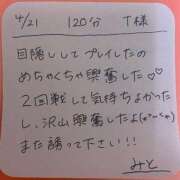 4/21 120分 T様
目隠ししてプレイしたの
めちゃくちゃ興奮した♡♡
2回戦して気持ちよかった
し、沢山興奮したよ(//∇//)
また誘って下さい!!
みと